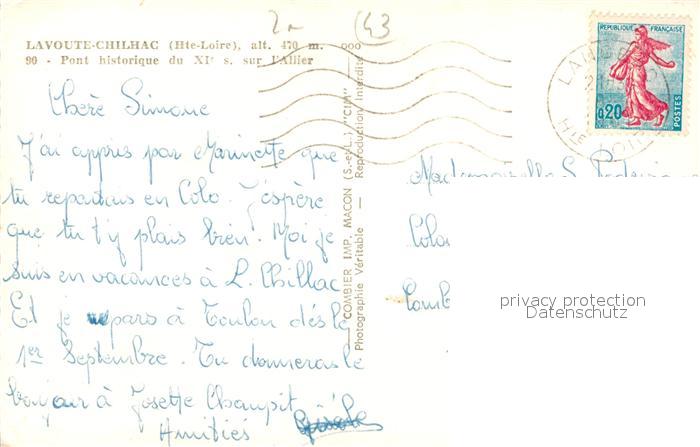 2- 43
LAVOUTE-CHILHAC (Hte-Loire), alt. 470 m.
90 - Pont historique du XIe s. sur l'Allier
Chère Simone
J'ai appris par Marinette que
tu repartais en Colo. J'espère
que tu t'y plais bien. Moi je
suis en vacances à L. Chillac
Et je repars à Toulon dès le
1er Septembre. Tu donneras le
bonjour à Josette Champit
Amitiés
COMBIER IMP. MACON (S.-et-L.) "CIM"
Photographie Véritable — Reproduction Interdite
REPUBLIQUE FRANÇAISE
0,20
POSTES
HTE LOIRE
Mademoiselle S.
Colo
Comb
privacy protection
Datenschutz